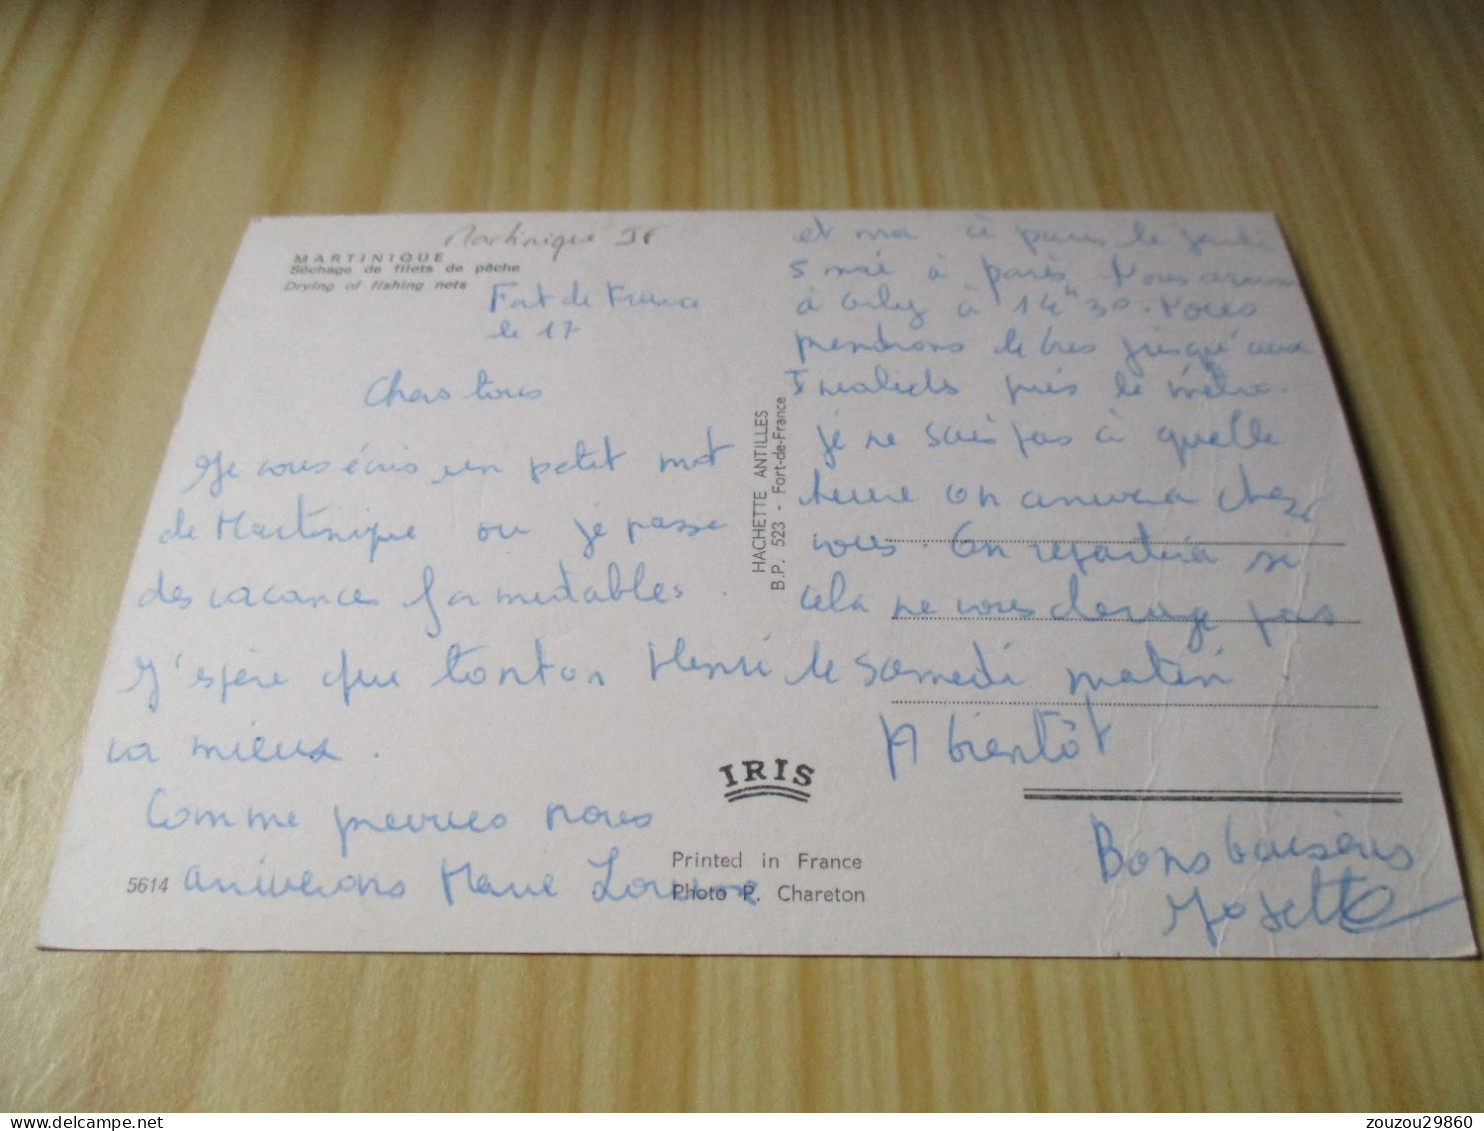 Martinique
MARTINIQUE
Séchage de filets de pêche
Drying of fishing nets
Fort de France
le 17
Chers tous
Je vous écris un petit mot
de Martinique ou je passe
des vacances formidables.
J'espère que tonton Henri
va mieux.
Comme prevues nous
arriverons Marie Louise
5614
HACHETTE ANTILLES
B.P. 523 - Fort-de-France
IRIS
Printed in France
Photo P. Chareton
et moi à le jeudi
5 mai à paris. Nous
à Orly à 14h30. Nous
prendrons le bus jusqu'aux
Invalides puis le métro.
je ne sais pas à quelle
heure on arrivera chez
vous. On repartira si
cela ne vous derange pas
le samedi matin.
A bientôt
Bons baisers
Josette
zouzou29860